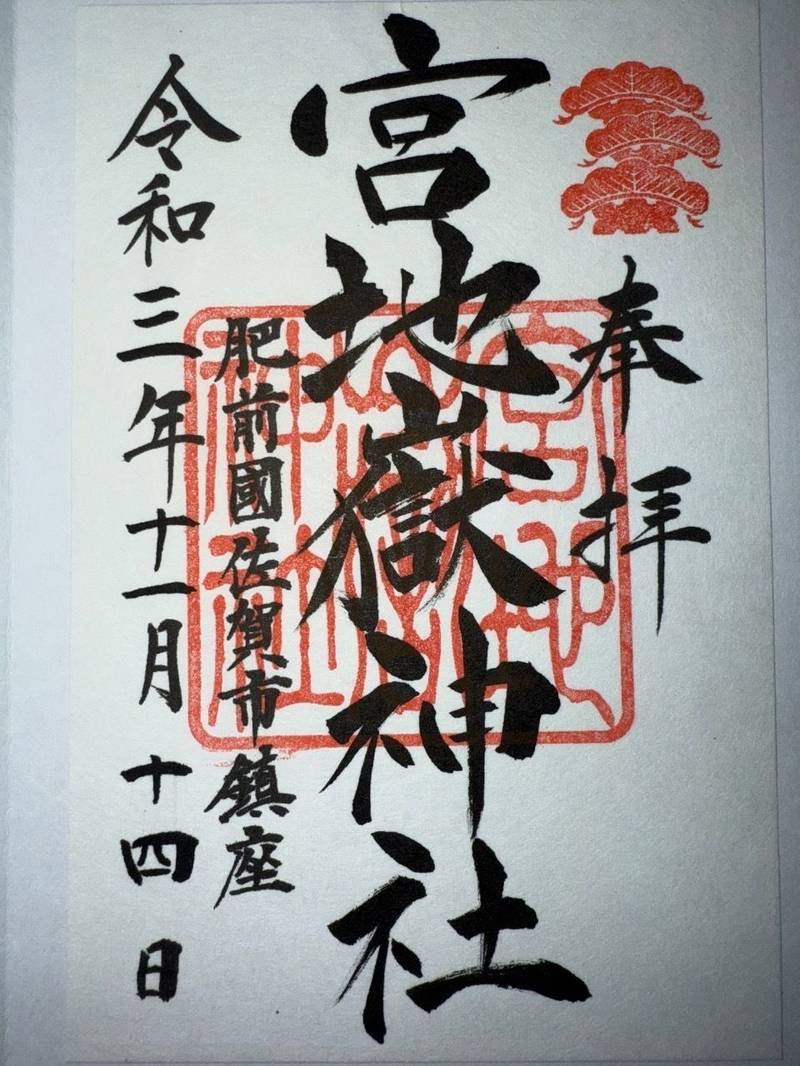 奉拝
宮地嶽神社
肥前國佐賀市鎮座
令和三年十一月十四日
宮地嶽神社